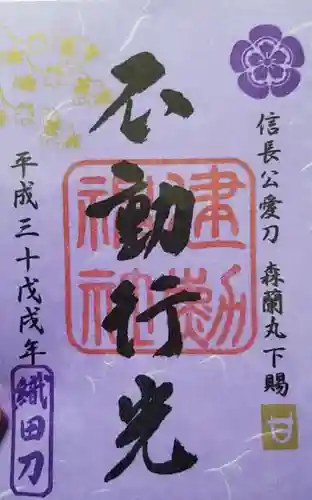 信長公愛刀 森蘭丸下賜
不動行光
建勲神社
平成三十戊戌年
織田刀